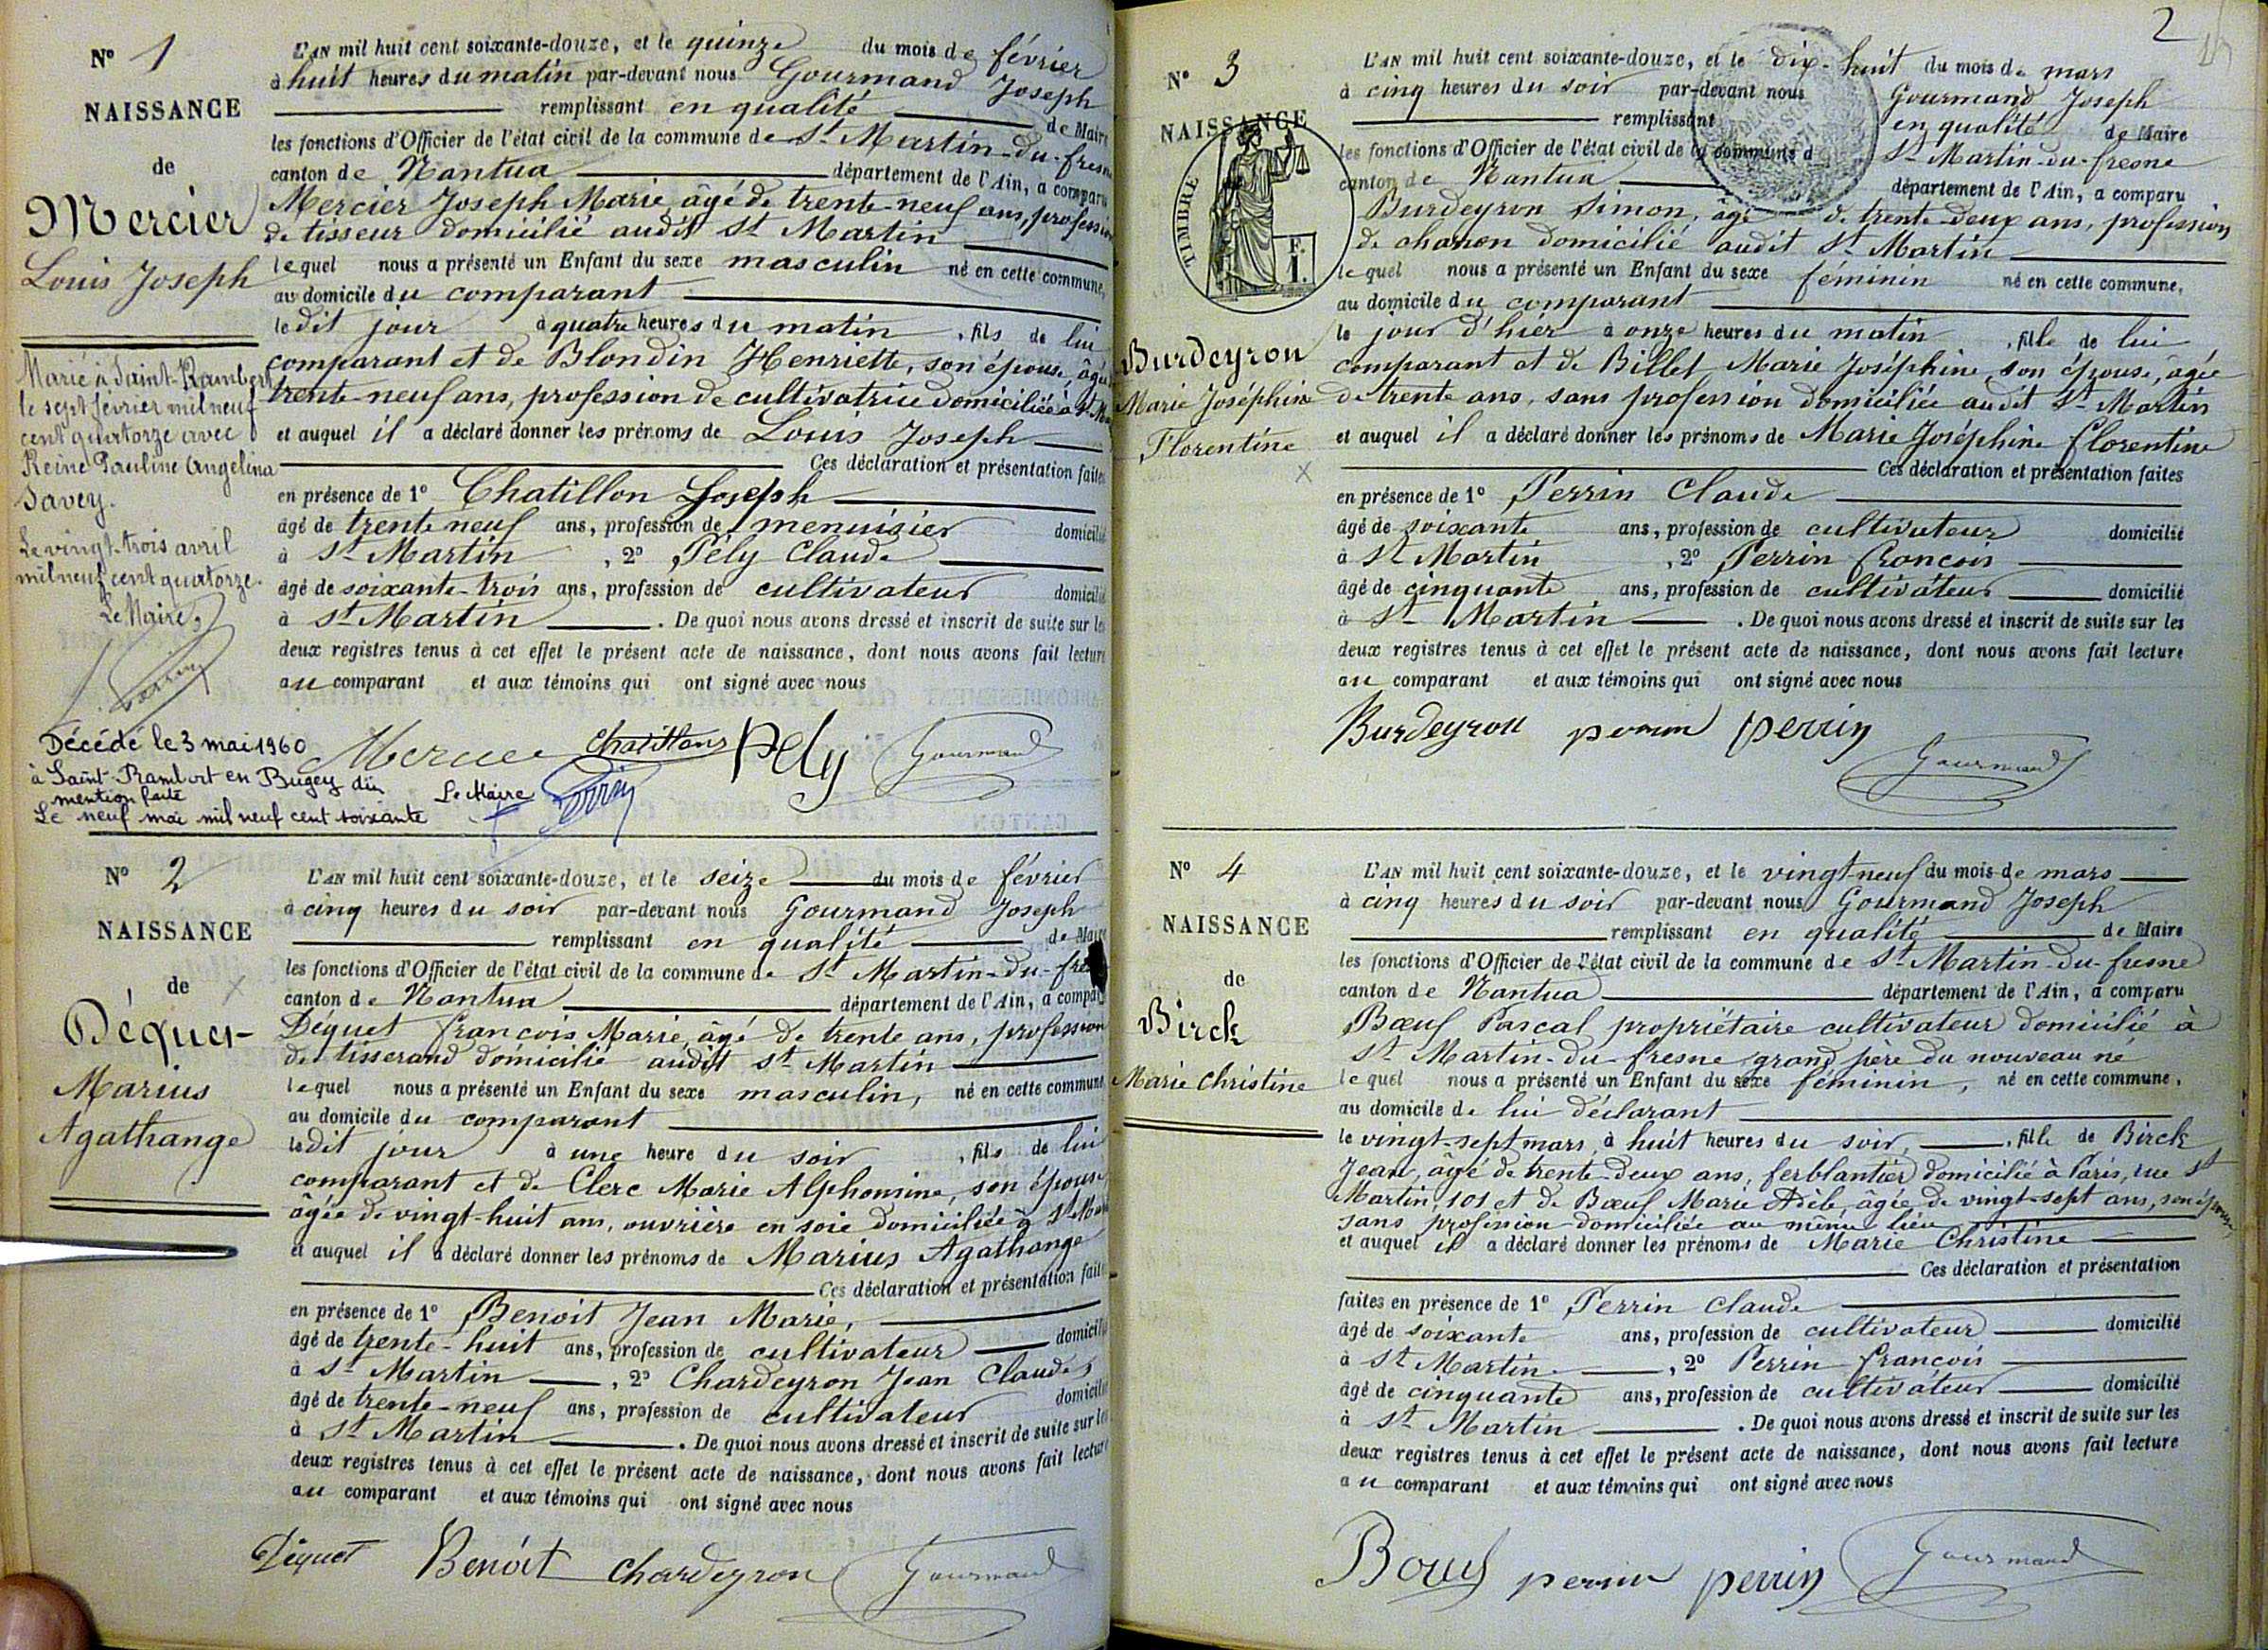 N° 1
NAISSANCE
de
Mercier
Louis Joseph
Marié à Saint-Rambert
le sept février mil neuf
cent quatorze avec
Reine Pauline Angelina
Savey.
Le vingt-trois avril
mil neuf cent quatorze.
Le Maire,
Décédé le 3 mai 1960
à Saint-Rambert en Bugey
mention faite
Le neuf mai mil neuf cent soixante
Le Maire
L'AN mil huit cent soixante-douze, et le quinze du mois de février
à huit heures du matin par-devant nous Gourmand Joseph
remplissant en qualité de Maire
les fonctions d'Officier de l'état civil de la commune de St Martin-du-fresne
canton de Nantua département de l'Ain, a comparu
Mercier Joseph Marie âgé de trente-neuf ans, profession
de tisseur domicilié audit St Martin
lequel nous a présenté un Enfant du sexe masculin né en cette commune,
au domicile du comparant
ledit jour à quatre heures du matin, fils de lui
comparant et de Blondin Henriette, son épouse, âgée
trente-neuf ans, profession de cultivatrice domiciliée à St Ma
et auquel il a déclaré donner les prénoms de Louis Joseph
Ces déclaration et présentation faites
en présence de 1° Chatillon Joseph
âgé de trente neuf ans, profession de menuisier domicilié
à St Martin, 2° Pély Claude
âgé de soixante-trois ans, profession de cultivateur domicilié
à St Martin. De quoi nous avons dressé et inscrit de suite sur les
deux registres tenus à cet effet le présent acte de naissance, dont nous avons fait lecture
au comparant et aux témoins qui ont signé avec nous
Mercier Chatillons Pély Gourmand
N° 2
NAISSANCE
de
Déquet
Marius
Agathange
L'AN mil huit cent soixante-douze, et le seize du mois de février
à cinq heures du soir par-devant nous Gourmand Joseph
remplissant en qualité de Maire
les fonctions d'Officier de l'état civil de la commune de St Martin-du-fre
canton de Nantua département de l'Ain, a comparu
Déquet françois Marie, âgé de trente ans, profession
de tisserand domicilié audit St Martin
lequel nous a présenté un Enfant du sexe masculin, né en cette commune
au domicile du comparant
ledit jour à une heure du soir, fils de lui
comparant et de Clerc Marie Alphonsine, son épouse
âgée de vingt-huit ans, ouvrière en soie domiciliée à St Ma
et auquel il a déclaré donner les prénoms de Marius Agathange
Ces déclaration et présentation faites
en présence de 1° Benoit Jean Marie,
âgé de trente-huit ans, profession de cultivateur domicilié
à St Martin, 2° Chardeyron Jean Claude,
âgé de trente-neuf ans, profession de cultivateur domicilié
à St Martin. De quoi nous avons dressé et inscrit de suite sur les
deux registres tenus à cet effet le présent acte de naissance, dont nous avons fait lecture
au comparant et aux témoins qui ont signé avec nous
Déquet Benoit Chardeyron Gourmand
2
N° 3
NAISSANCE
TIMBRE
F.
1.
Burdeyron
Marie Joséphine
Florentine
L'AN mil huit cent soixante-douze, et le dix-huit du mois de mars
à cinq heures du soir par-devant nous Gourmand Joseph
remplissant en qualité de Maire
les fonctions d'Officier de l'état civil de la commune d St Martin-du-fresne
canton de Nantua département de l'Ain, a comparu
Burdeyron Simon, âgé de trente-deux ans, profession
de charron domicilié audit St Martin
lequel nous a présenté un Enfant du sexe féminin né en cette commune,
au domicile du comparant
le jour d'hier à onze heures du matin, fille de lui
comparant et de Billet Marie Joséphine, son épouse, âgée
de trente ans, sans profession domiciliée audit St Martin
et auquel il a déclaré donner les prénoms de Marie Joséphine florentine
Ces déclaration et présentation faites
en présence de 1° Perrin Claude
âgé de soixante ans, profession de cultivateur domicilié
à St Martin, 2° Perrin françois
âgé de cinquante ans, profession de cultivateur domicilié
à St Martin. De quoi nous avons dressé et inscrit de suite sur les
deux registres tenus à cet effet le présent acte de naissance, dont nous avons fait lecture
au comparant et aux témoins qui ont signé avec nous
Burdeyron perrin perrin
Gourmand
N° 4
NAISSANCE
de
Birck
Marie Christine
L'AN mil huit cent soixante-douze, et le vingt-neuf du mois de mars
à cinq heures du soir par-devant nous Gourmand Joseph
remplissant en qualité de Maire
les fonctions d'Officier de l'état civil de la commune de St Martin-du-fresne
canton de Nantua département de l'Ain, a comparu
Bœuf Pascal propriétaire cultivateur domicilié à
St Martin-du-fresne grand père du nouveau né
lequel nous a présenté un Enfant du sexe féminin, né en cette commune,
au domicile de lui déclarant
le vingt-sept mars, à huit heures du soir, fille de Birck
Jean, âgé de trente-deux ans, ferblantier domicilié à Paris, rue St
Martin, 101 et de Bœuf Marie Adèle, âgée de vingt-sept ans, son épouse
sans profession domiciliée au même lieu
et auquel il a déclaré donner les prénoms de Marie Christine
Ces déclaration et présentation
faites en présence de 1° Perrin Claude
âgé de soixante ans, profession de cultivateur domicilié
à St Martin, 2° Perrin françois
âgé de cinquante ans, profession de cultivateur domicilié
à St Martin. De quoi nous avons dressé et inscrit de suite sur les
deux registres tenus à cet effet le présent acte de naissance, dont nous avons fait lecture
au comparant et aux témoins qui ont signé avec nous
Bœuf perrin perrin Gourmand